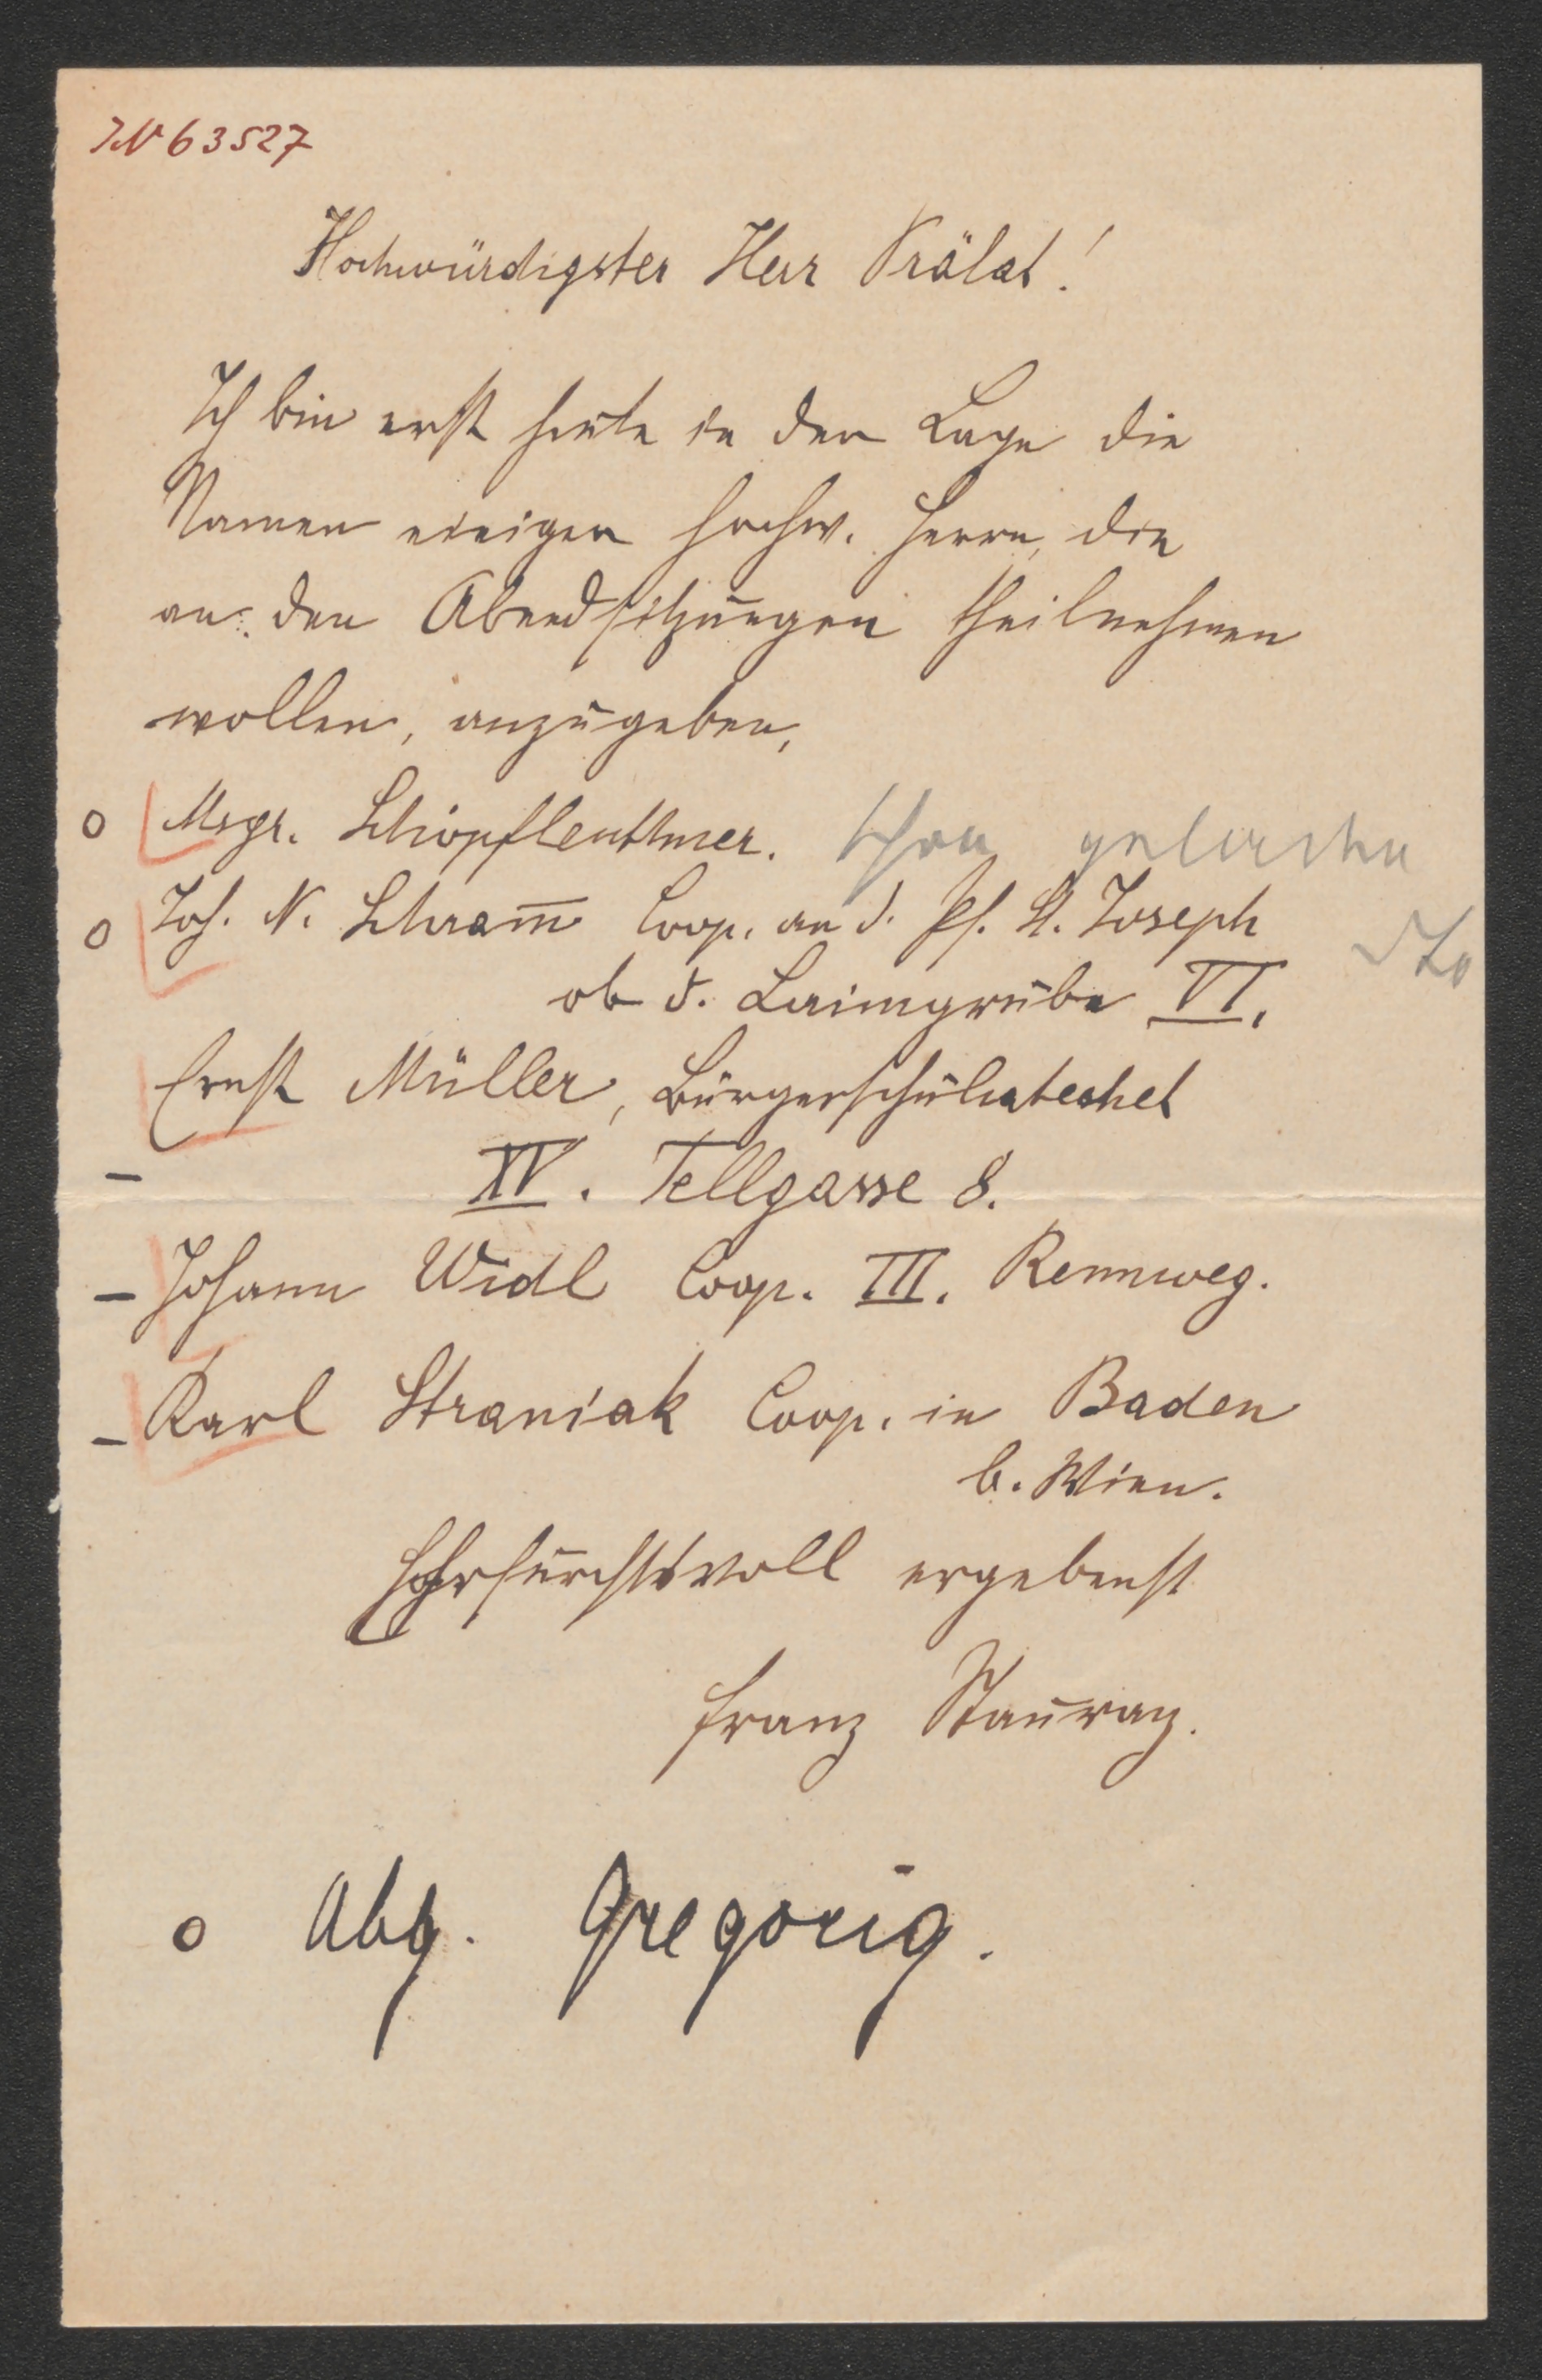 IN 63527
Hochwürdigster Herr Prälat!
Ich bin erst heute in der Lage die
Namen einiger hochw. Herrn, die
an den Abendsitzungen theilnehmen
wollen, anzugeben,
o Msgr. Schöpfleuthner. schon geladen
o Joh. N. Schram̅ Coop. an d. Pf. St. Joseph dto
ob d. Laimgrube VI.
Ernst Müller, Bürgerschulkatechet
– XV. Tellgasse 8.
– Johann Widl Coop. III. Rennweg.
– Karl Straniak Coop. in Baden
b. Wien.
Ehrfurchtsvoll ergebenst
Franz Stauracz.
o Abg. Gregorig.